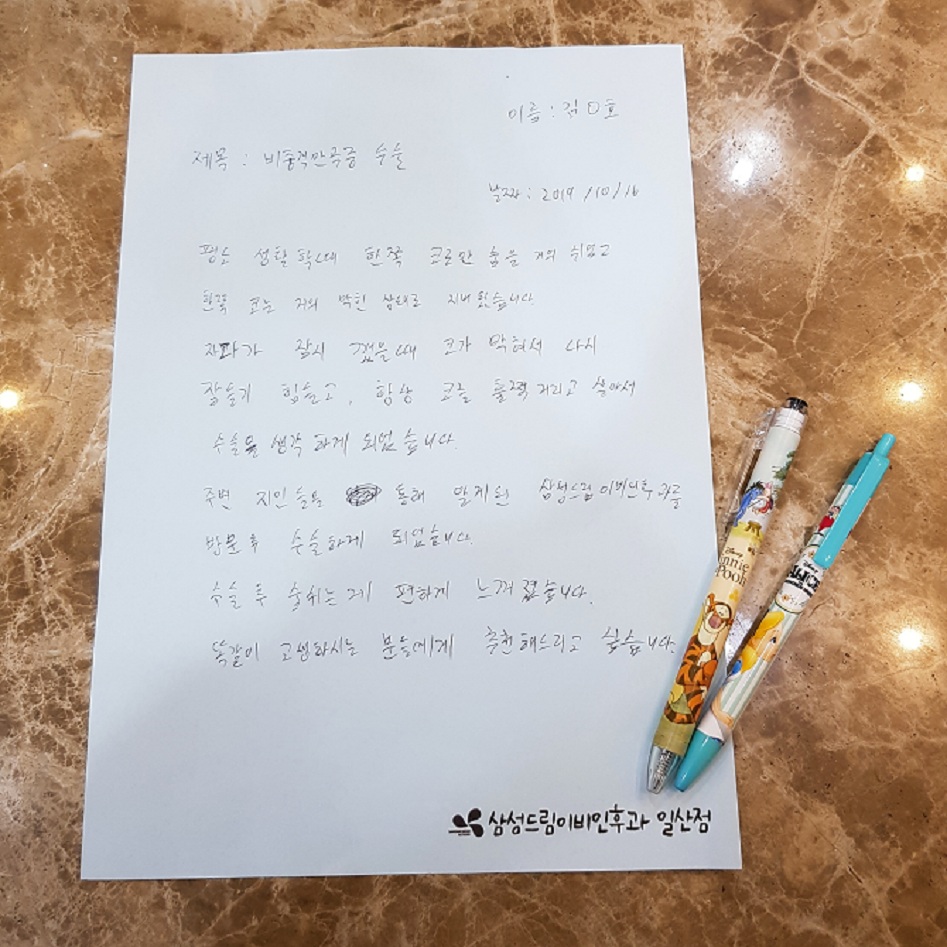 이름 : 김O호
제목 : 비중격만곡증 수술
날짜 : 2019 /10/16
평소 생활 할때 한쪽 코로만 숨을 거의 쉬었고
한쪽 코는 거의 막힌 상태로 지내 왔습니다.
자다가 잠시 깼을때 코가 막혀서 다시
잠들기 힘들고, 항상 코를 훌쩍거리고 살아서
수술을 생각 하게 되었습니다.
주변 지인들을 통해 알게된 삼성드림이비인후과를
방문후 수술하게 되었습니다.
수술 후 숨쉬는게 편하게 느껴졌습니다.
똑같이 고생하시는 분들에게 추천해드리고 싶습니다.
Disney
Winnie
Pooh
삼성드림이비인후과 일산점